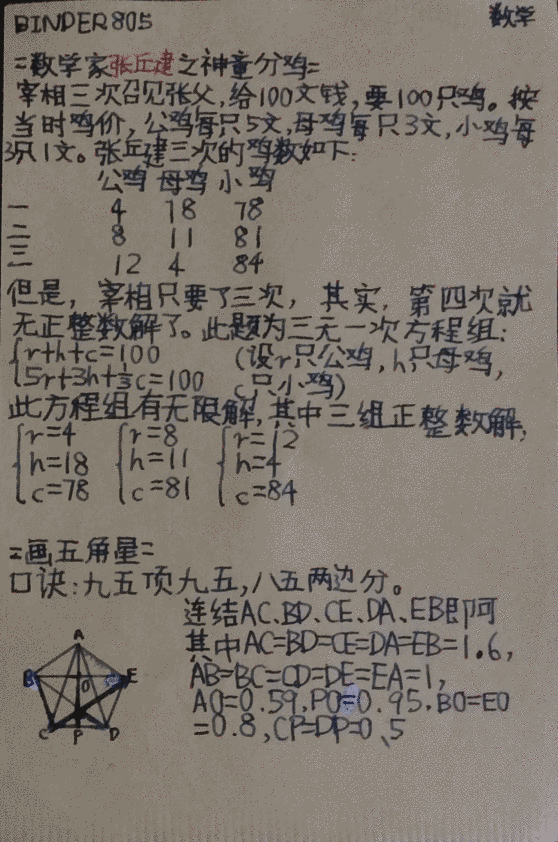 BINDER805 数学
=数学家张丘建之神童分鸡=
宰相三次召见张父,给100文钱,要100只鸡。按
当时鸡价,公鸡每只5文,母鸡每只3文,小鸡每
3只1文。张丘建三次的鸡数如下:
公鸡 母鸡 小鸡
一 4 18 78
二 8 11 81
三 12 4 84
但是,宰相只要了三次,其实,第四次就
无正整数解了。此题为三元一次方程组:
{r+h+c=100 (设r只公鸡,h只母鸡,
{5r+3h+⅓c=100 c只小鸡)
此方程组有无限解,其中三组正整数解,
{r=4 {r=8 {r=12
{h=18 {h=11 {h=4
{c=78 {c=81 {c=84
=画五角星=
口诀:九五顶九五,八五两边分。
连结AC、BD、CE、DA、EB即可
其中AC=BD=CE=DA=EB=1.6,
AB=BC=CD=DE=EA=1,
AO=0.59,PO=0.95,BO=EO
=0.8,CP=DP=0.5
A
B O E
C P D